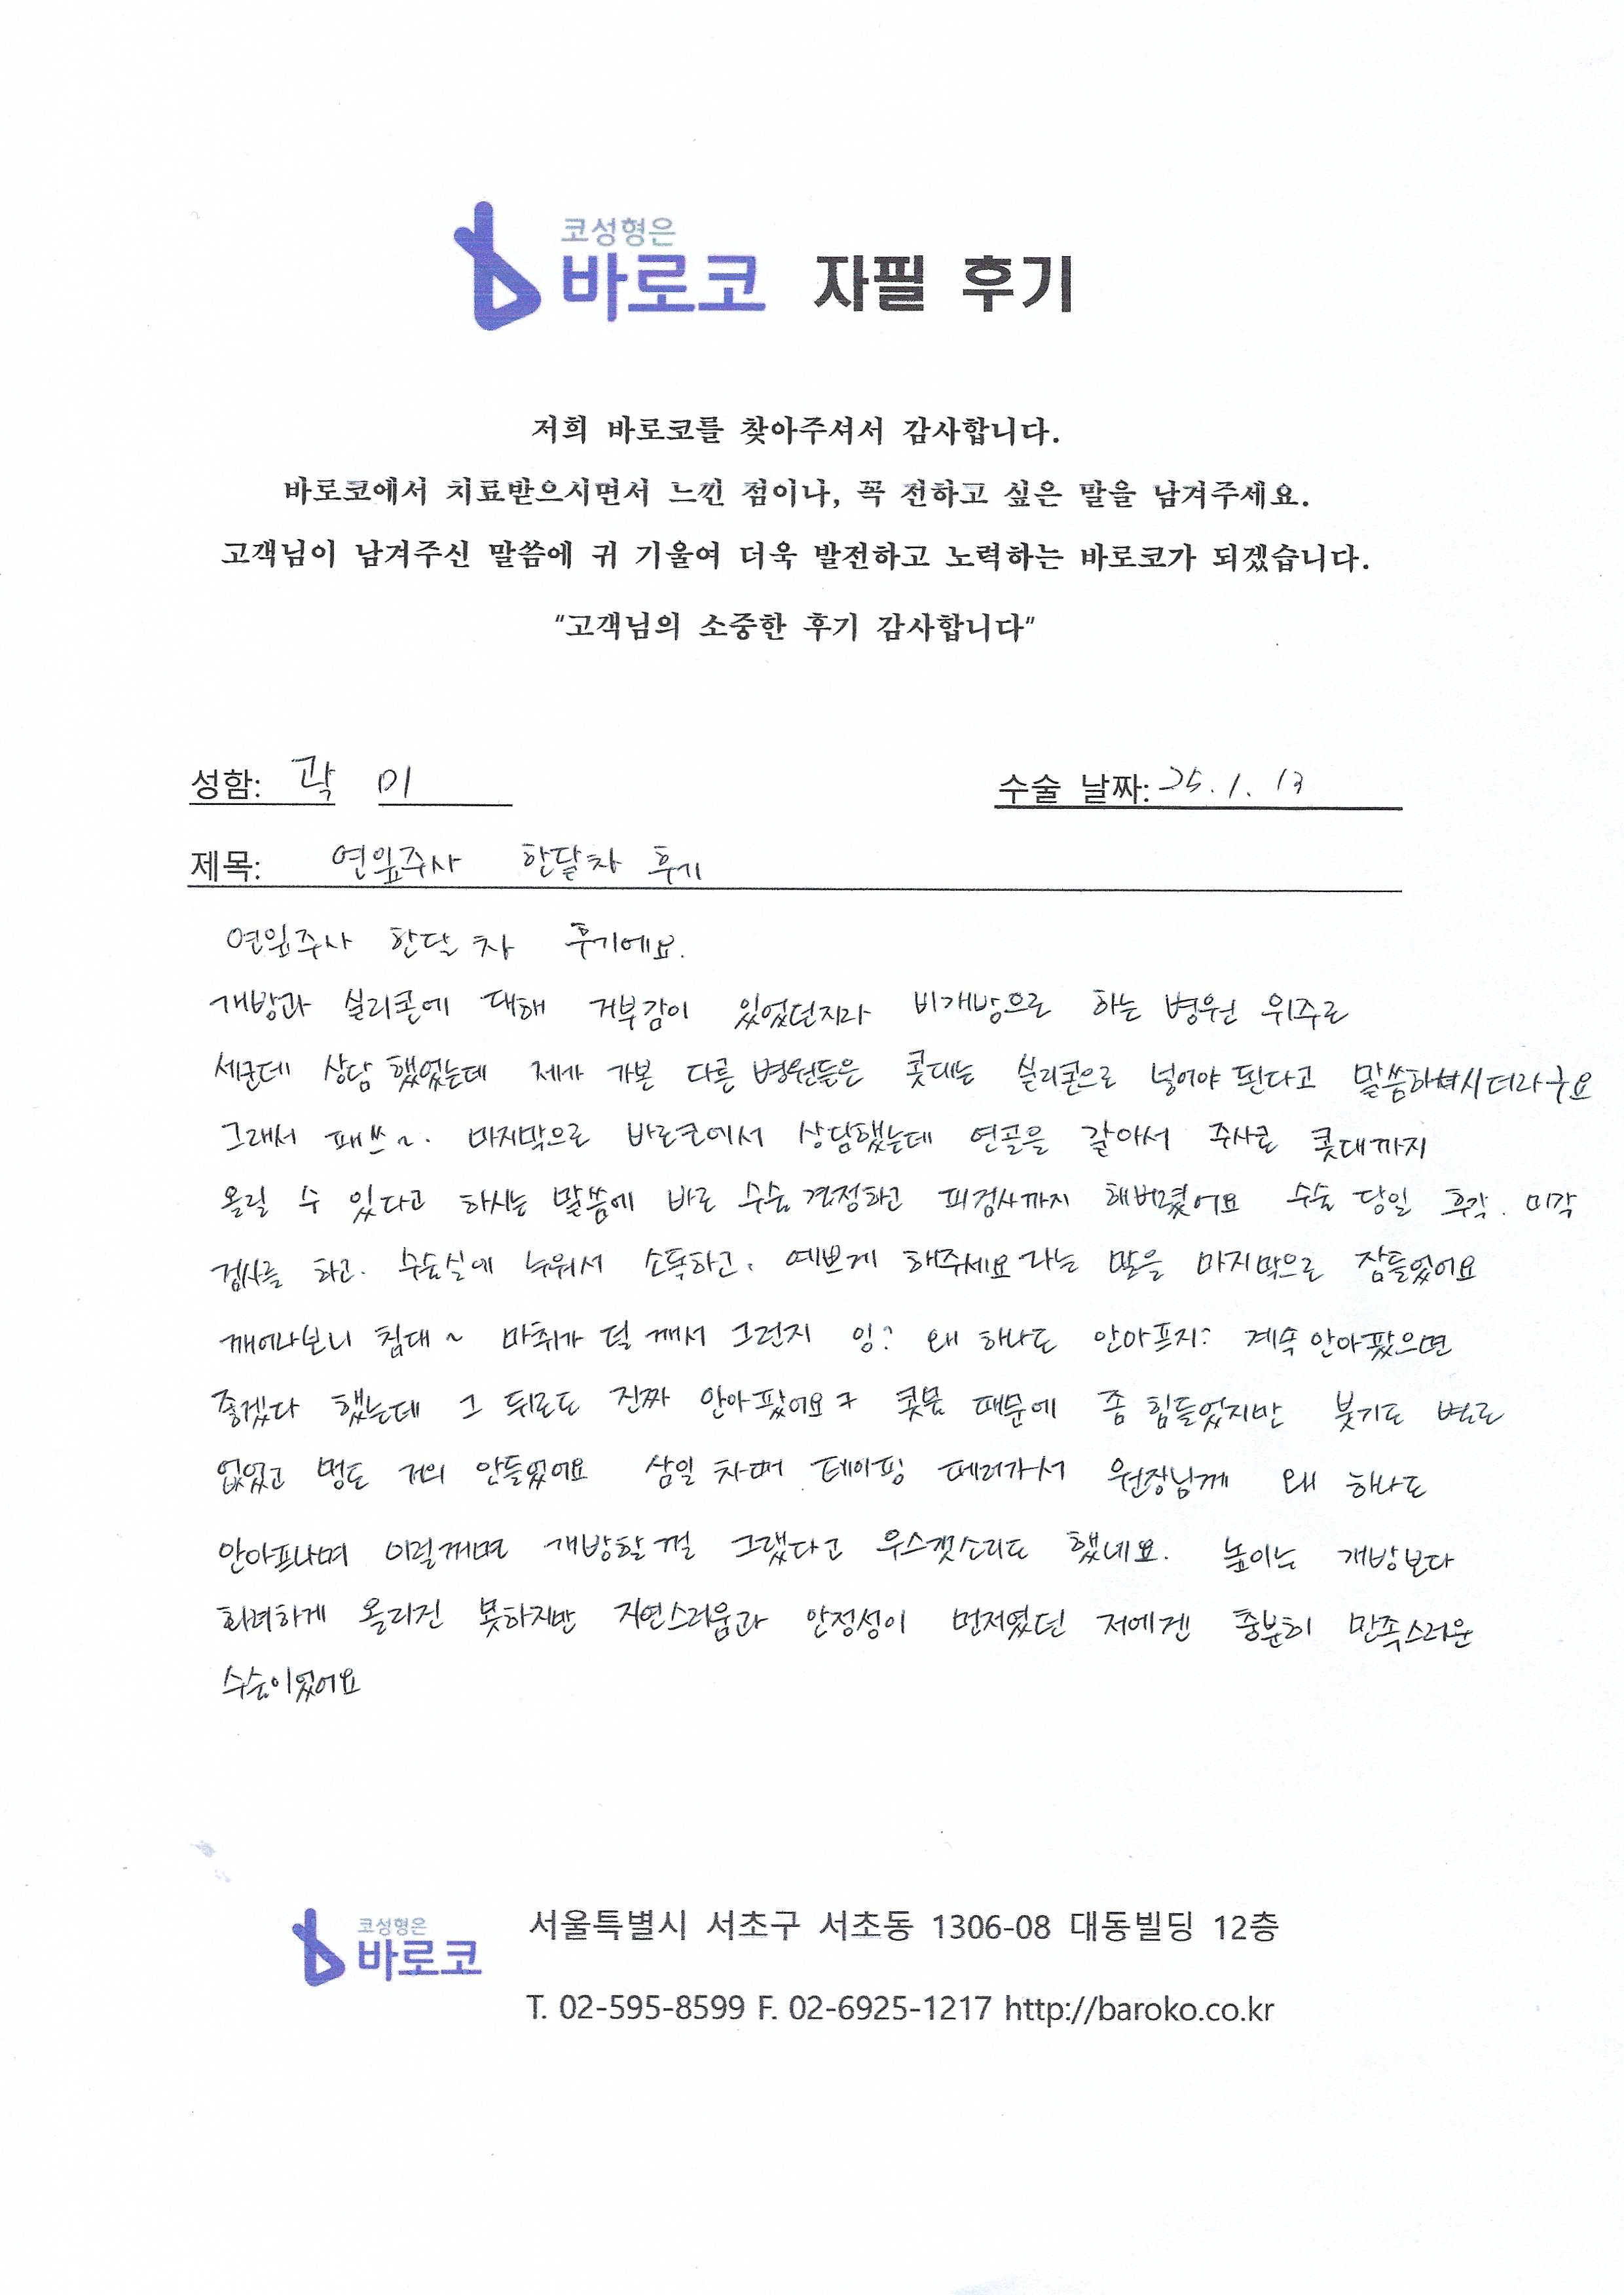 코성형은
바로코 자필 후기
저희 바로코를 찾아주셔서 감사합니다.
바로코에서 치료받으시면서 느낀 점이나, 꼭 전하고 싶은 말을 남겨주세요.
고객님이 남겨주신 말씀에 귀 기울여 더욱 발전하고 노력하는 바로코가 되겠습니다.
"고객님의 소중한 후기 감사합니다"
성함: 곽 미 수술 날짜: 25. 1. 13
제목: 연잎주사 한달차 후기
연잎주사 한달 차 후기에요.
개방과 실리콘에 대해 거부감이 있었던지라 비개방으로 하는 병원 위주로
세군데 상담 했었는데 제가 가본 다른 병원들은 콧대는 실리콘으로 넣어야 된다고 말씀하시더라구요
그래서 패쓰~. 마지막으로 바로코에서 상담했는데 연골을 갈아서 주사로 콧대까지
올릴 수 있다고 하시는 말씀에 바로 수술 결정하고 피검사까지 해버렸어요 수술 당일 후각. 미각
검사를 하고. 수술실에 누워서 소독하고. 예쁘게 해주세요 라는 말을 마지막으로 잠들었어요
깨어나보니 침대~ 마취가 덜 깨서 그런지 잉? 왜 하나도 안아프지? 계속 안아팠으면
좋겠다 했는데 그 뒤로도 진짜 안아팠어요ㅋ 콧물 때문에 좀 힘들었지만 붓기도 별로
없었고 멍도 거의 안들었어요 삼일 차때 테이핑 떼러가서 원장님께 왜 하나도
안아프냐며 이럴꺼면 개방할껄 그랬다고 우스갯소리도 했네요. 높이는 개방보다
화려하게 올리진 못하지만 자연스러움과 안정성이 먼저였던 저에겐 충분히 만족스러운
수술이었어요
코성형은
바로코
서울특별시 서초구 서초동 1306-08 대동빌딩 12층
T. 02-595-8599 F. 02-6925-1217 http://baroko.co.kr